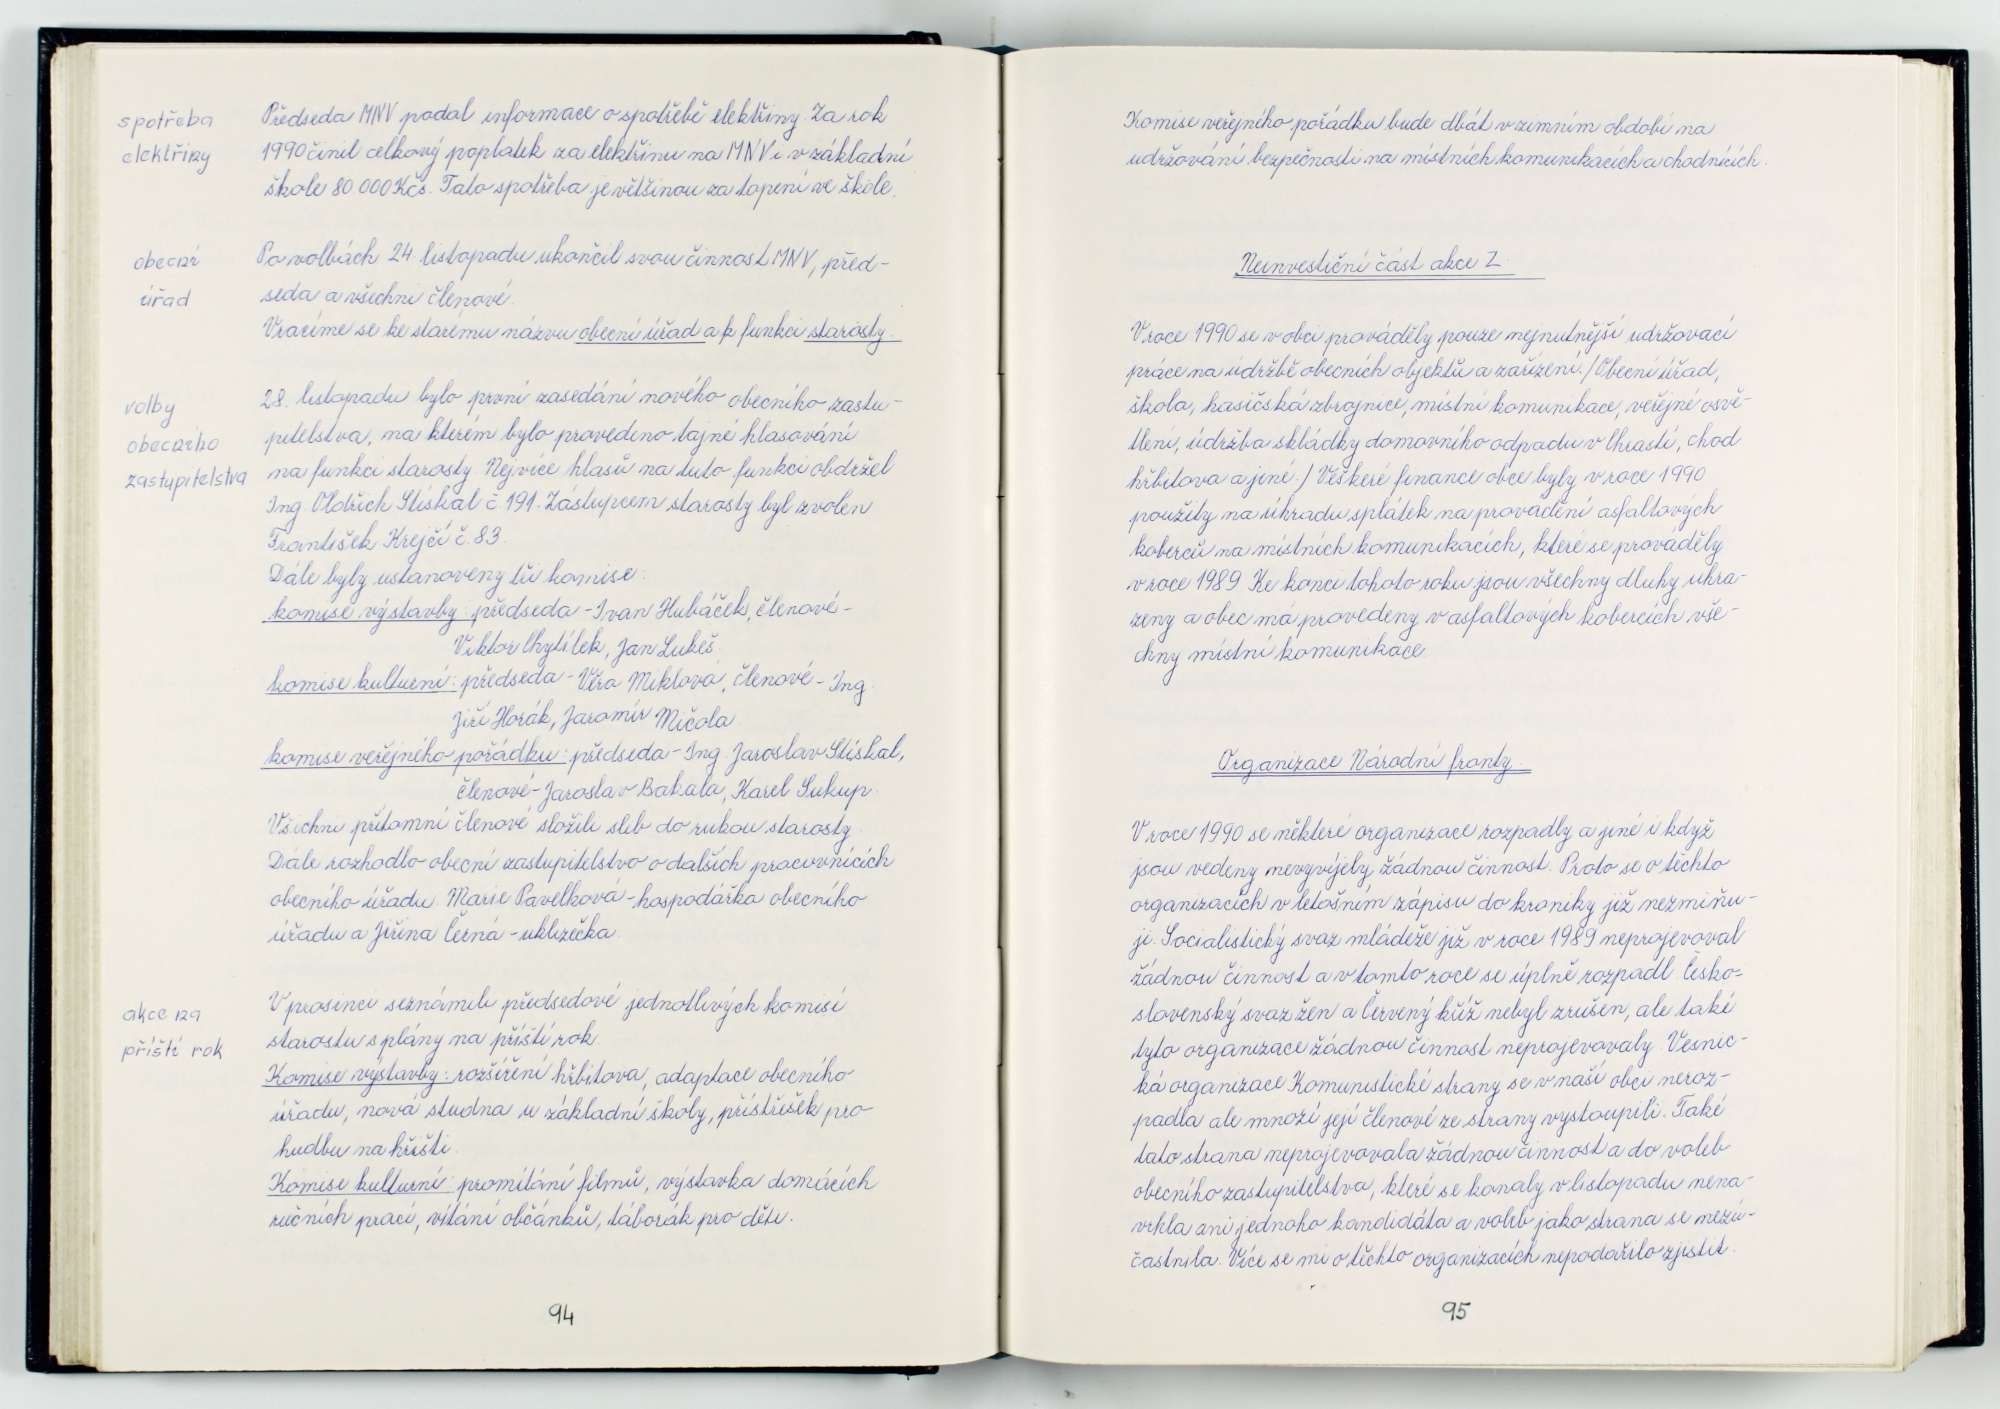 spotřeba
elektřiny
Předseda MNV podal informace o spotřebě elektřiny. Za rok
1990 činil celkový poplatek za elektřinu na MNV i v základní
škole 80 000 Kčs. Tato spotřeba je většinou za topení ve škole.
obecní
úřad
Po volbách 24. listopadu ukončil svou činnost MNV, před-
seda a všichni členové.
Vracíme se ke starému názvu obecní úřad a k funkci starosty.
volby
obecního
zastupitelstva
28. listopadu bylo první zasedání nového obecního zastu-
pitelstva, na kterém bylo provedeno tajné hlasování
na funkci starosty. Nejvíce hlasů na tuto funkci obdržel
Ing. Oldřich Stískal č. 191. Zástupcem starosty byl zvolen
František Krejčí č. 83.
Dále byly ustanoveny tři komise:
komise výstavby: předseda - Ivan Hubáček, členové -
Viktor Chytílek, Jan Lukeš.
komise kulturní: předseda - Věra Miklová, členové - Ing.
Jiří Horák, Jaromír Mičola
komise veřejného pořádku: předseda - Ing. Jaroslav Stískal,
členové - Jaroslav Bakala, Karel Sukup.
Všichni přítomní členové složili slib do rukou starosty.
Dále rozhodlo obecní zastupitelstvo o dalších pracovnících
obecního úřadu. Marie Pavelková - hospodářka obecního
úřadu a Jiřina Černá - uklizečka.
akce na
příští rok
V prosinci seznámili předsedové jednotlivých komisí
starostu s plány na příští rok.
Komise výstavby: rozšíření hřbitova, adaptace obecního
úřadu, nová studna u základní školy, přístřešek pro
hudbu na hřišti.
Komise kulturní: promítání filmů, výstavka domácích
ručních prací, vítání občánků, táborák pro děti.
94
Komise veřejného pořádku bude dbát v zimním období na
udržování bezpečnosti na místních komunikacích a chodnících.
Neinvestiční část akce Z.
V roce 1990 se v obci prováděly pouze nejnutnější udržovací
práce na údržbě obecních objektů a zařízení. /Obecní úřad,
škola, hasičská zbrojnice, místní komunikace, veřejné osvě-
tlení, údržba skládky domovního odpadu v Chrastí, chod
hřbitova a jiné./ Veškeré finance obce byly v roce 1990
použity na úhradu splátek na provádění asfaltových
koberců na místních komunikacích, které se prováděly
v roce 1989. Ke konci tohoto roku jsou všechny dluhy uhra-
zeny a obec má provedeny v asfaltových kobercích vše-
chny místní komunikace
Organizace Národní fronty.
V roce 1990 se některé organizace rozpadly a jiné i když
jsou vedeny nevyvíjely žádnou činnost. Proto se o těchto
organizacích v letošním zápisu do kroniky již nezmiňu-
ji. Socialistický svaz mládeže již v roce 1989 neprojevoval
žádnou činnost a v tomto roce se úplně rozpadl. Česko-
slovenský svaz žen a Červený kříž nebyl zrušen, ale také
tyto organizace žádnou činnost neprojevovaly. Vesnic-
ká organizace Komunistické strany se v naší obci neroz-
padla ale mnozí její členové ze strany vystoupili. Také
tato strana neprojevovala žádnou činnost a do voleb
obecního zastupitelstva, které se konaly v listopadu nena-
vrhla ani jednoho kandidáta a voleb jako strana se nezú-
častnila. Více se mi o těchto organizacích nepodařilo zjistit.
95